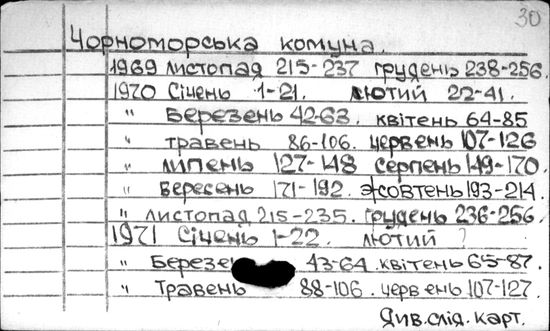 30
Чорноморська комуна.
1969 листопад 215-237 грудень 238-256.
1970 Січень 1-21. лютий 22-41.
" Березень 42-63. квітень 64-85
" травень 86-106. червень 107-126
" липень 127-148 серпень 149-170.
" вересень 171-192. жовтень 193-214.
" листопад 215-235. грудень 236-256.
1971 Січень 1-22. лютий ?
" Березе 43-64. квітень 65-87.
" Травень 88-106. червень 107-127.
Див. слід. карт.